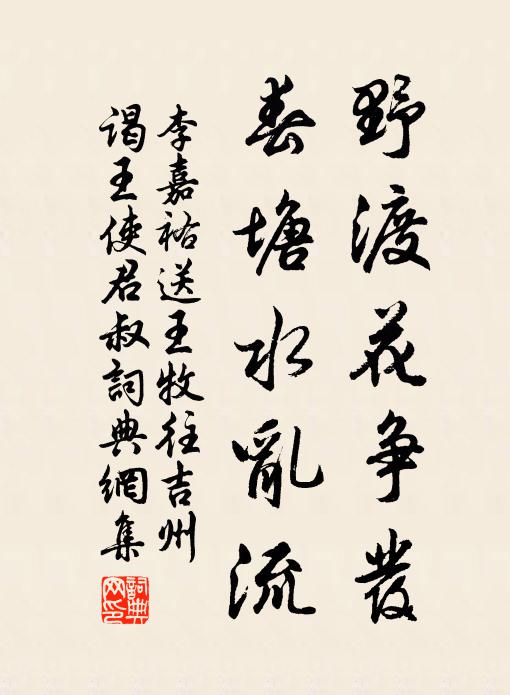 野渡花争發
春塘水亂流
李嘉祐送王牧往吉州
謁王使君叔詞典網集
詞典网印